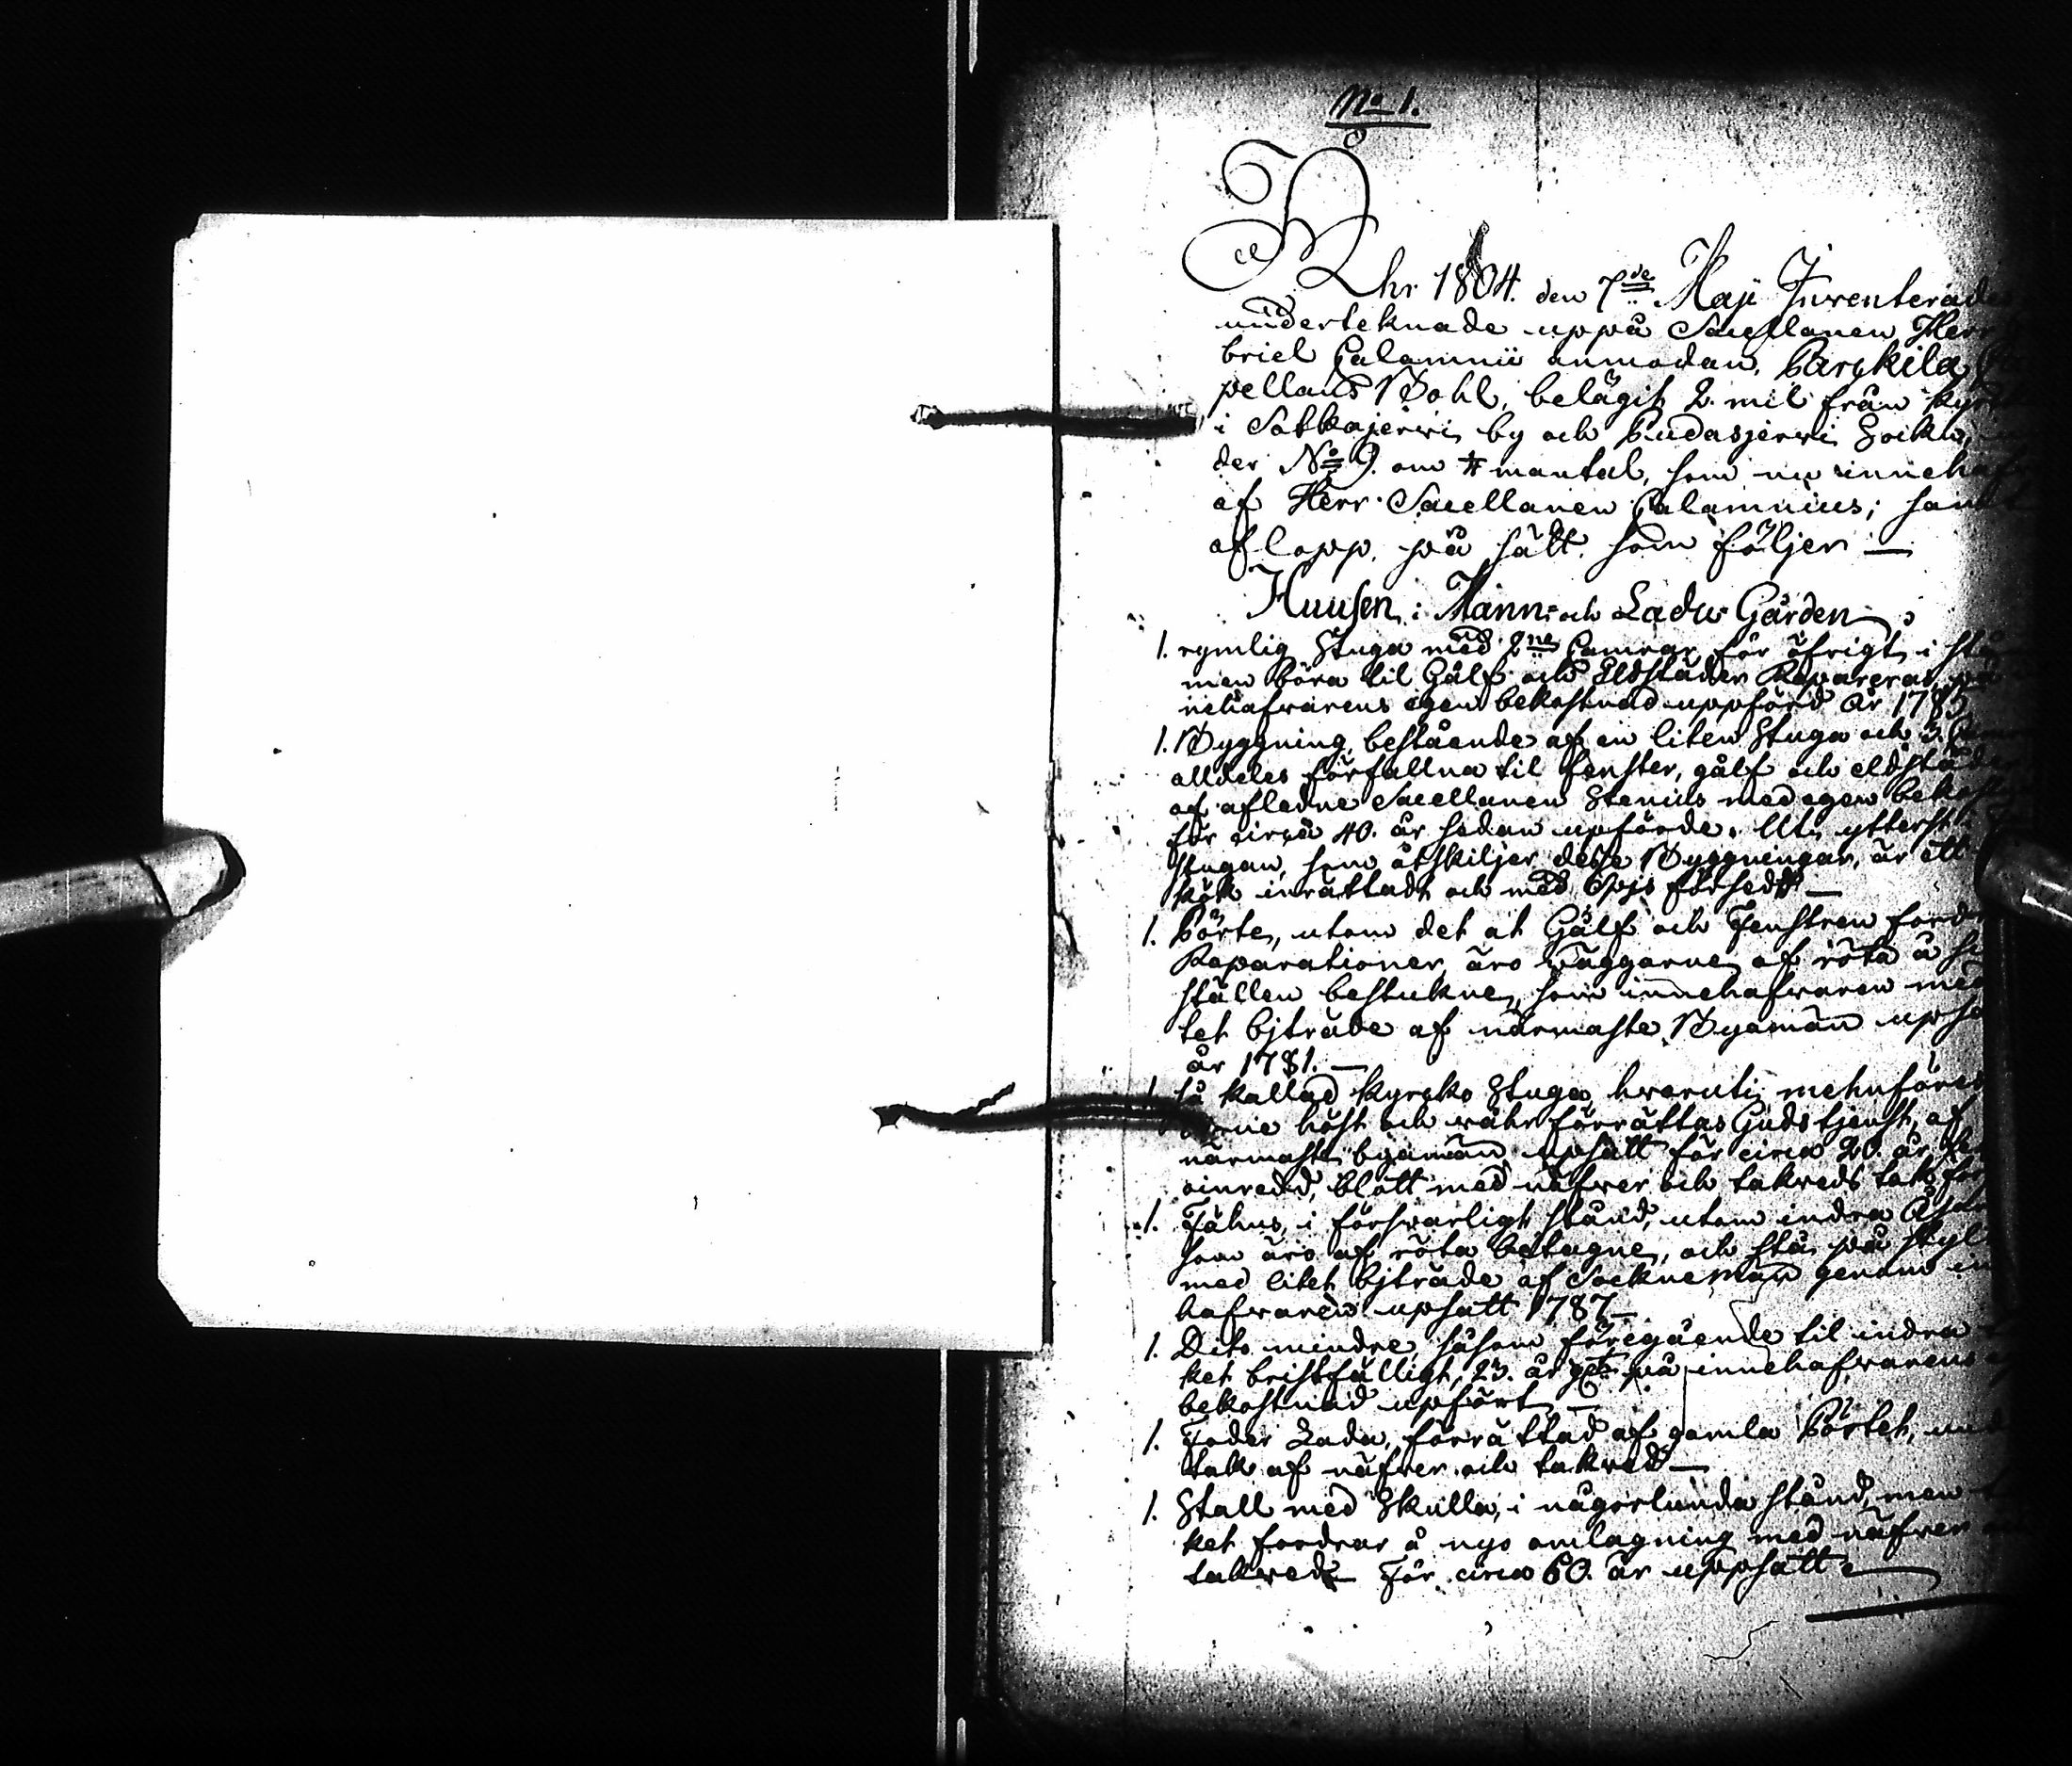 No 1.
Åhr 1804. den 7de Maji Inventerades
underteknade uppå Sacellanen Herr
briel Calamnii anmodan, Bärgkila
pellans Bohl, belägit 2. mil från kyrk
i Sotkajerwi by och Pudasjerwi Sokn,
der No 9. om mantal, som nu innehaf
af Herr Sacellanen Calamnius; samt
aflopp på sätt som följer —
Huusen i Mann- och Ladu Gården
1. rymlig Stuga med 2ne Camrar för öfrigt i stå
men böra til Gålf och Eldstäder Repareras, på
nehafvarens egen bekostnad uppförd år 1785
1. Byggning, bestående af en liten Stuga och 3.
alldeles förfallna til fenster, gålf och eldstäder
af afledne Sacellanen Stenius med egen bekost
för circa 40. år sedan upförde. Uti ytterst
stugan, som åtskiljer desse Byggningar, är ett
kök inrättadt och med spis försedt —
1. Pörte, utom det at Gålf och Fenstren fordra
Reparationer, äro väggarne af röta å
ställen bestukne, som innehafvaren med
tet bjträde af närmaste Byamän upsa
år 1781. —
1. så kallad Kyrcko Stuga, hvaruti
höst och våhr förrättas Gudstjenst, af
närmaste byamän upsatt för circa 20. år
oinredd, blott med näfver och takveds tak
1. Fähus, i försvarligt stånd, utom indra
som äro af röta betagne, och stå på
med litet bjträde af Socknemän genom in
hafvaren upsatt 1787 —
1. Dito mindre, såsom föregående til indra
ket bristfälligt, 23. år på innehafvarens
bekostnad upfört —
1. Foder Lada, förrättad af gamla Pörtet, und
tak af näfver och takved —
1. Stall med Skulla, i någorlunda stånd, men
ket fordrar å nyo omlagning med näfver
takved — För circa 60. år uppsatt